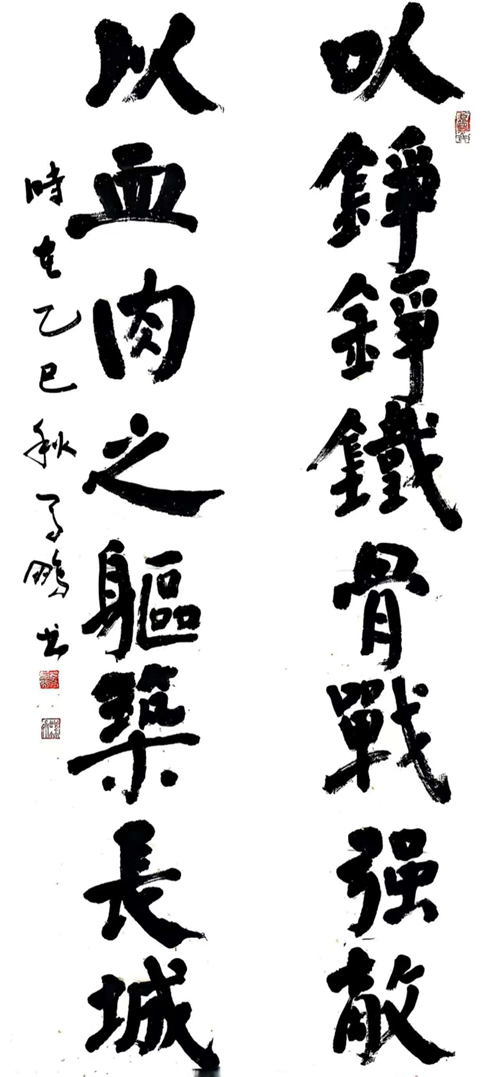 以錚錚鐵骨戰强敵
以血肉之軀築長城
時在乙巳秋马鵬书